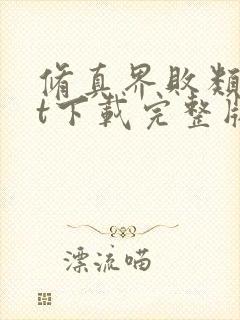 脩真界敗類
t下載完整版
漂流喵